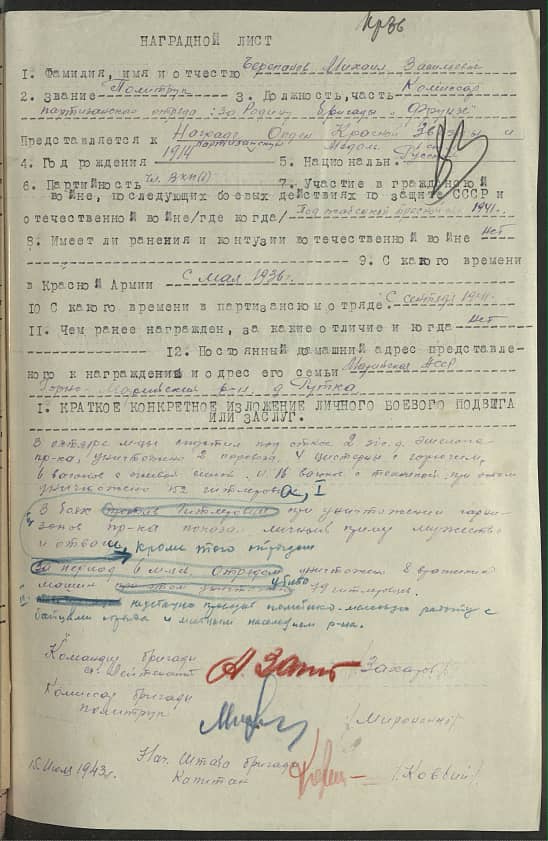 НАГРАДНОЙ ЛИСТ
1. Фамилия, имя и отчество Черепанов Михаил
2. Звание Политрук 3. Должность, часть Комиссар
партизанского отряда "За Родину" бригады Фрунзе
Представляется к Награде Орден Красной Звезды и
партизанской медали
4. Год рождения 1914 5. Национальн.
6. Партийность чл. ВКП(б) 7. Участие в гражданской
войне, последующих боевых действиях по защите СССР и
отечественной войне/где когда/ 1941
8. Имеет ли ранения и контузии в отечественной войне нет
9. С какого времени
в Красной Армии с мая 1936г.
10 С какого времени в партизанском отряде. с сентября 1941г.
11. Чем ранее награжден, за какие отличие и когда нет
12. Постояннный домашний адрес представле-
ного к награждений и адрес его семьи АССР
Горно-Марийский р-н д.
1. КРАТКОЕ КОНКРЕТНОЕ ИЗЛОЖЕНИЕ ЛИЧНОГО БОЕВОГО ПОДВИГА
ИЛИ ЗАСЛУГ.
В октябре м-цы спустил под откос 2 эшелона
пр-ка, уничтожив 2 паровоза, 4 цистерны с горючем,
6 вагонов с живой силой и 16 вагонов с техникой при этом
уничтожено 152 гитлеровца,
В боях против гитлеровцев при уничтожении гарни-
зонов пр-ка показал личный пример мужества
и отваги, Кроме того отрядом
За период 6 м-цев отрядом уничтожен 8 вражеских
машин при этом убито 79 гитлеровц.
проводит политико-массовую работу с
бойцами отряда и местным населением р-на.
Командир бригады
ст. лейтенант /Захаров/
Комиссар бригады
политрук /Мироненко/
15 Июля 1943г. Нач. Штаба бригады
Капитан